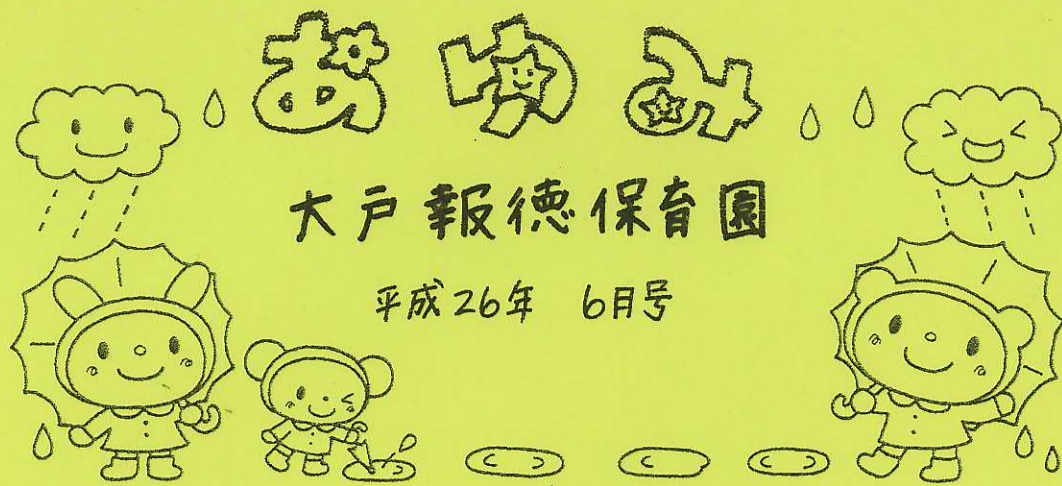 あゆみ
大戸報徳保育園
平成26年 6月号